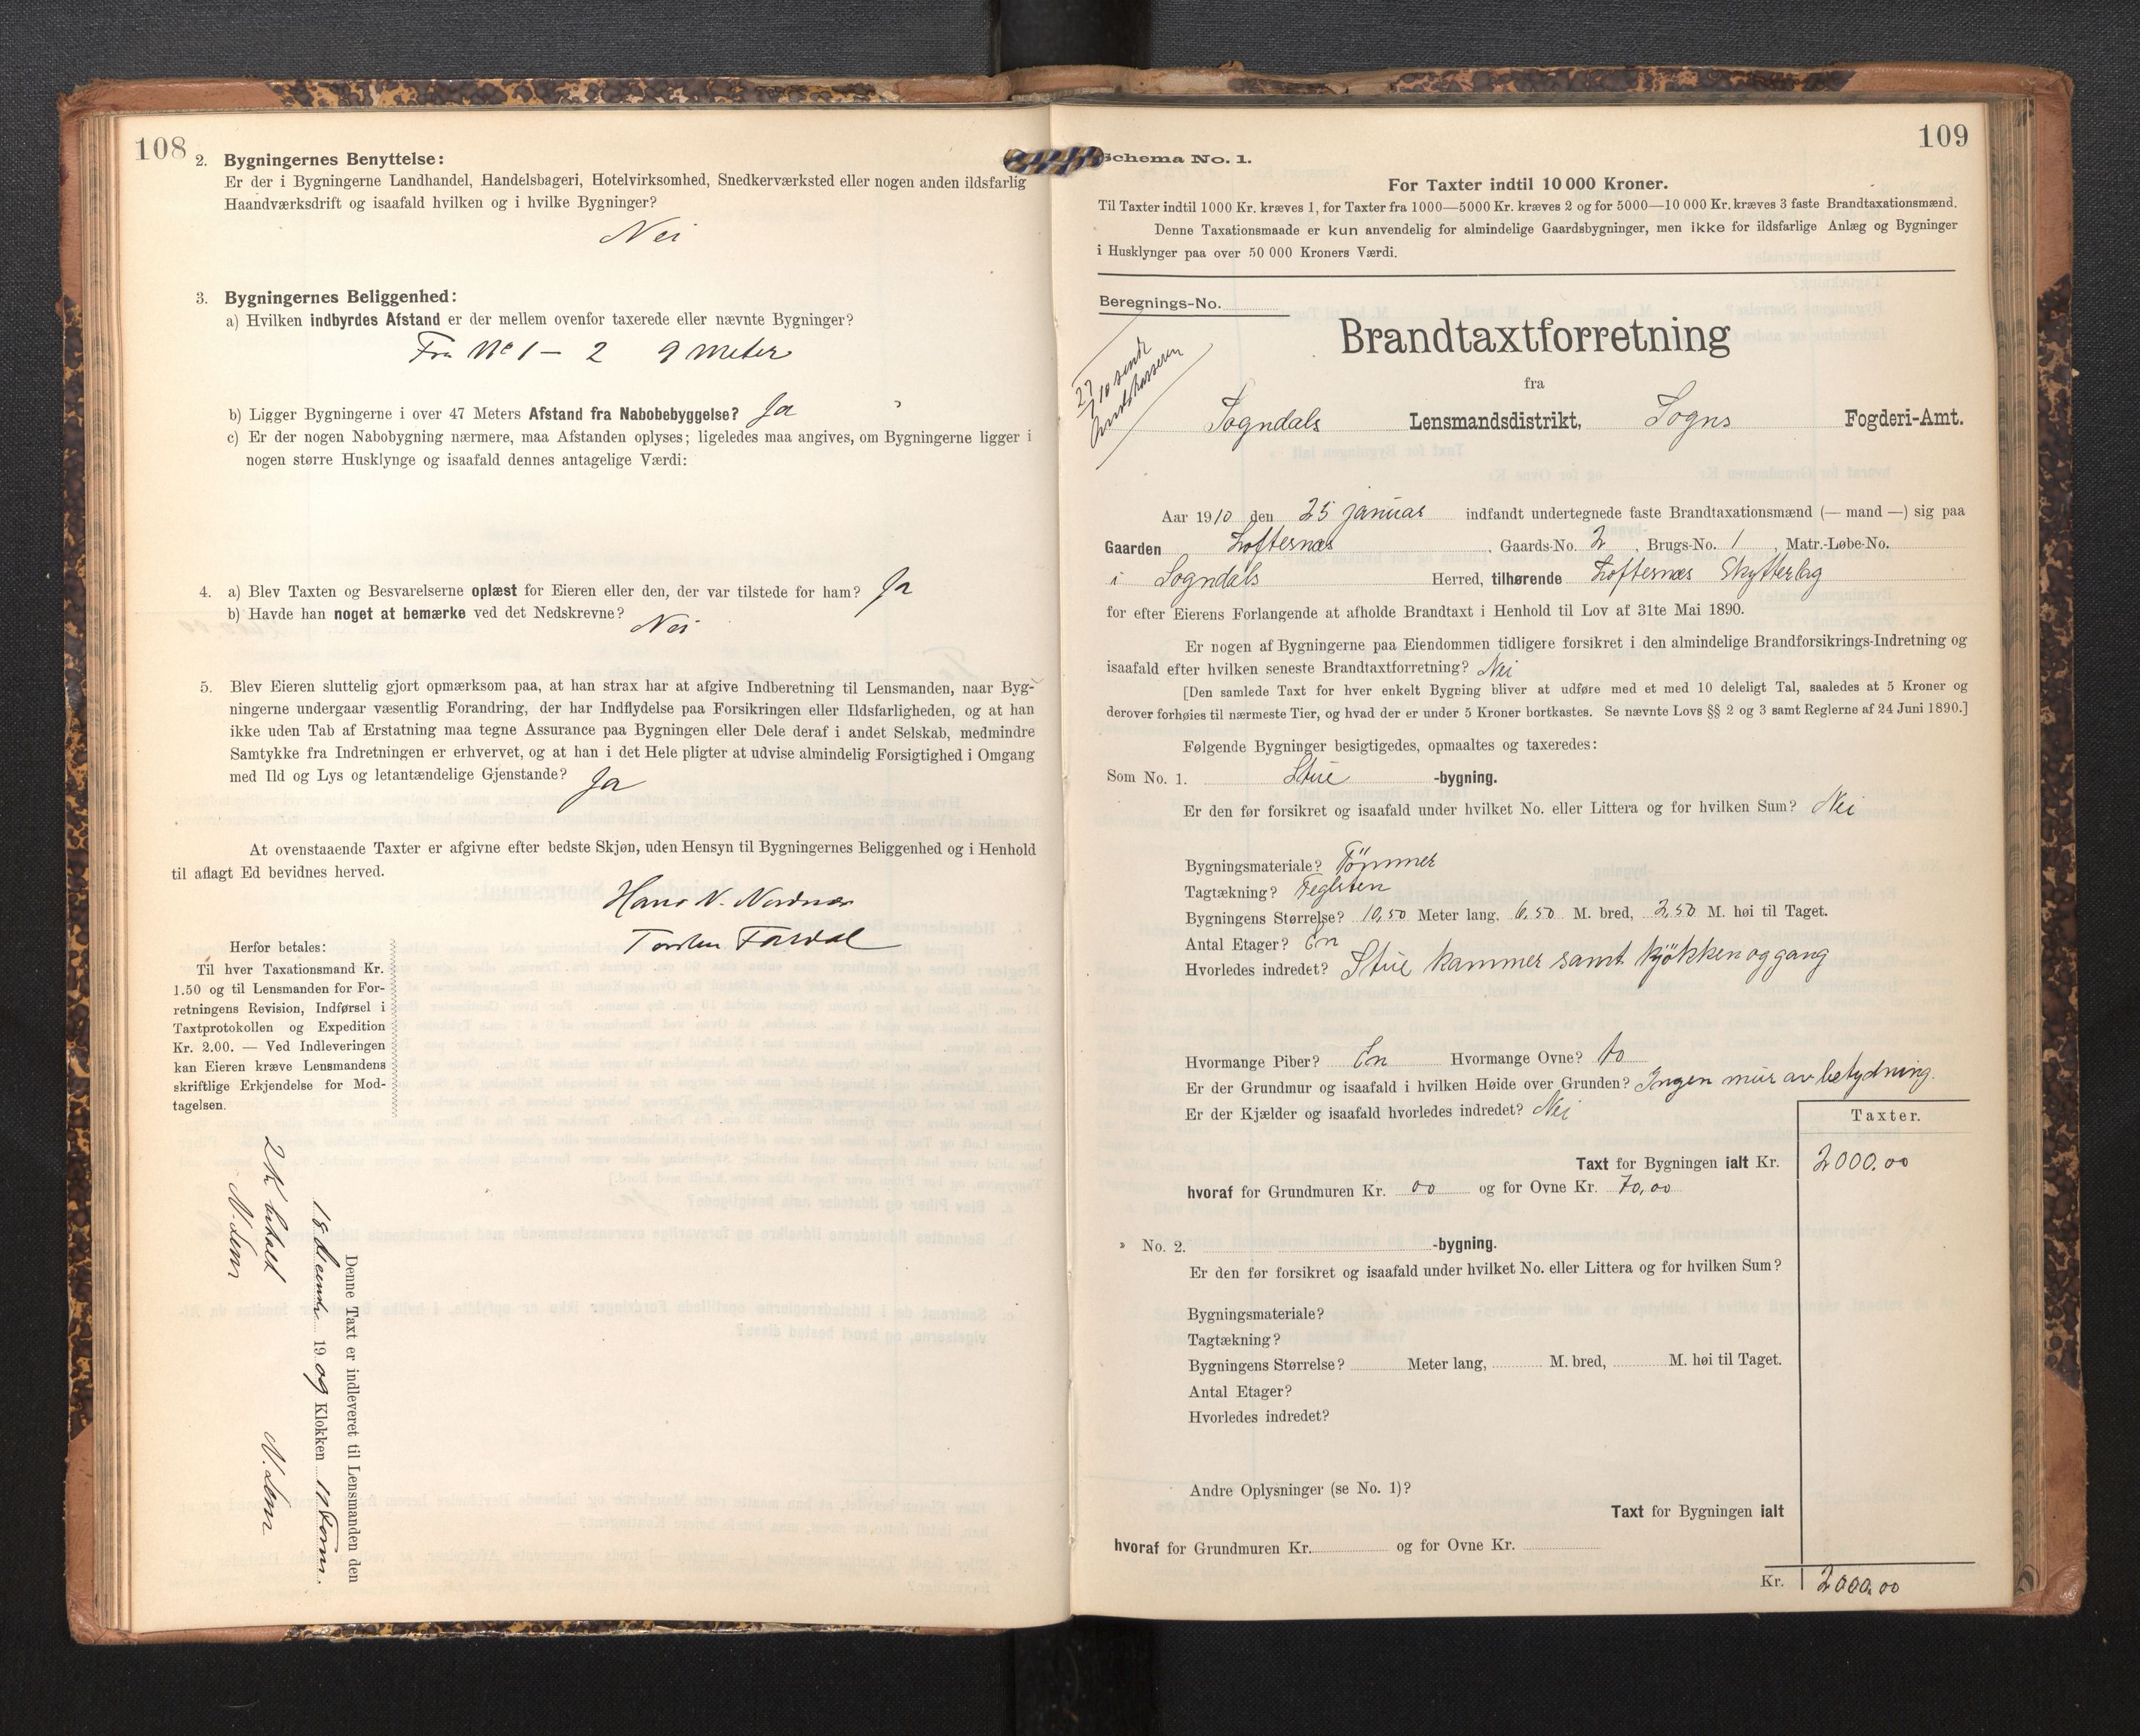 108
2. Bygningernes Benyttelse:
Er der i Bygningerne Landhandel, Handelsbageri, Hotelvirksomhed, Snedkerværksted eller nogen anden ildsfarlig
Haandværksdrift og isaafald hvilken og i hvilke Bygninger?
Nei
3. Bygningernes Beliggenhed:
a) Hvilken indbyrdes Afstand er der mellem ovenfor taxerede eller nævnte Bygninger?
Fra No 1 – 2 9 meter
b) Ligger Bygningerne i over 47 Meters Afstand fra Nabobebyggelse? Ja
c) Er der nogen Nabobygning nærmere, maa Afstanden oplyses; ligeledes maa angives, om Bygningerne ligger i
nogen større Husklynge og isaafald dennes antagelige Værdi:
4. a) Blev Taxten og Besvarelserne oplæst for Eieren eller den, der var tilstede for ham? Ja
b) Havde han noget at bemærke ved det Nedskrevne? Nei
5. Blev Eieren sluttelig gjort opmærksom paa, at han strax har at afgive Indberetning til Lensmanden, naar Byg-
ningerne undergaar væsentlig Forandring, der har Indflydelse paa Forsikringen eller Ildsfarligheden, og at han
ikke uden Tab af Erstatning maa tegne Assurance paa Bygningen eller Dele deraf i andet Selskab, medmindre
Samtykke fra Indretningen er erhvervet, og at han i det Hele pligter at udvise almindelig Forsigtighed i Omgang
med Ild og Lys og letantændelige Gjenstande? Ja
At ovenstaaende Taxter er afgivne efter bedste Skjøn, uden Hensyn til Bygningernes Beliggenhed og i Henhold
til aflagt Ed bevidnes herved.
Hans N. Nordnæs
Torsten Fardal
Herfor betales:
Til hver Taxationsmand Kr.
1.50 og til Lensmanden for For-
retningens Revision, Indførsel i
Taxtprotokollen og Expedition
Kr. 2.00. — Ved Indleveringen
kan Eieren kræve Lensmandens
skriftlige Erkjendelse for Mod-
tagelsen.
Denne Taxt er indleveret til Lensmanden den
18 19 09 Klokken 12 Form.
2 Kr betalt N. Lem
N. Lem
109
Schema No. 1.
For Taxter indtil 10 000 Kroner.
Til Taxter indtil 1000 Kr. kræves 1, for Taxter fra 1000—5000 Kr. kræves 2 og for 5000—10 000 Kr. kræves 3 faste Brandtaxationsmænd.
Denne Taxationsmaade er kun anvendelig for almindelige Gaardsbygninger, men ikke for ildsfarlige Anlæg og Bygninger
i Husklynger paa over 50 000 Kroners Værdi.
Beregnings-No.
Brandtaxtforretning
27/10 sendt
fra
Sogndals Lensmandsdistrikt, Sogns Fogderi-Amt.
Aar 1910 den 25 januar indfandt undertegnede faste Brandtaxationsmænd (— mand —) sig paa
Gaarden Loftesnæs, Gaards-No. 2, Brugs-No. 1, Matr.-Løbe-No.
i Sogndals Herred, tilhørende Loftesnæs Skytterlag
for efter Eierens Forlangende at afholde Brandtaxt i Henhold til Lov af 31te Mai 1890.
Er nogen af Bygningerne paa Eiendommen tidligere forsikret i den almindelige Brandforsikrings-Indretning og
isaafald efter hvilken seneste Brandtaxtforretning? Nei
[Den samlede Taxt for hver enkelt Bygning bliver at udføre med et med 10 deleligt Tal, saaledes at 5 Kroner og
derover forhøies til nærmeste Tier, og hvad der er under 5 Kroner bortkastes. Se nævnte Lovs §§ 2 og 3 samt Reglerne af 24 Juni 1890.]
Følgende Bygninger besigtigedes, opmaaltes og taxeredes:
Som No. 1. Stue -bygning.
Er den før forsikret og isaafald under hvilket No. eller Littera og for hvilken Sum? Nei
Bygningsmateriale? Tömmer
Tagtækning? Teglsten
Bygningens Størrelse? 10,50 Meter lang, 6,50 M. bred, 2,50 M. høi til Taget.
Antal Etager? En
Hvorledes indredet? Stue kammer samt kjökken og gang
Hvormange Piber? En Hvormange Ovne? to
Er der Grundmur og isaafald i hvilken Høide over Grunden? Ingen mur av betydning.
Er der Kjælder og isaafald hvorledes indredet? Nei
Taxter.
Taxt for Bygningen ialt Kr. 2000.00
hvoraf for Grundmuren Kr. 00 og for Ovne Kr. 70,00
» No. 2. -bygning.
Er den før forsikret og isaafald under hvilket No. eller Littera og for hvilken Sum?
Bygningsmateriale?
Tagtækning?
Bygningens Størrelse? Meter lang, M. bred, M. høi til Taget.
Antal Etager?
Hvorledes indredet?
Andre Oplysninger (se No. 1)?
Taxt for Bygningen ialt
hvoraf for Grundmuren Kr. og for Ovne Kr.
Kr. 2000.00